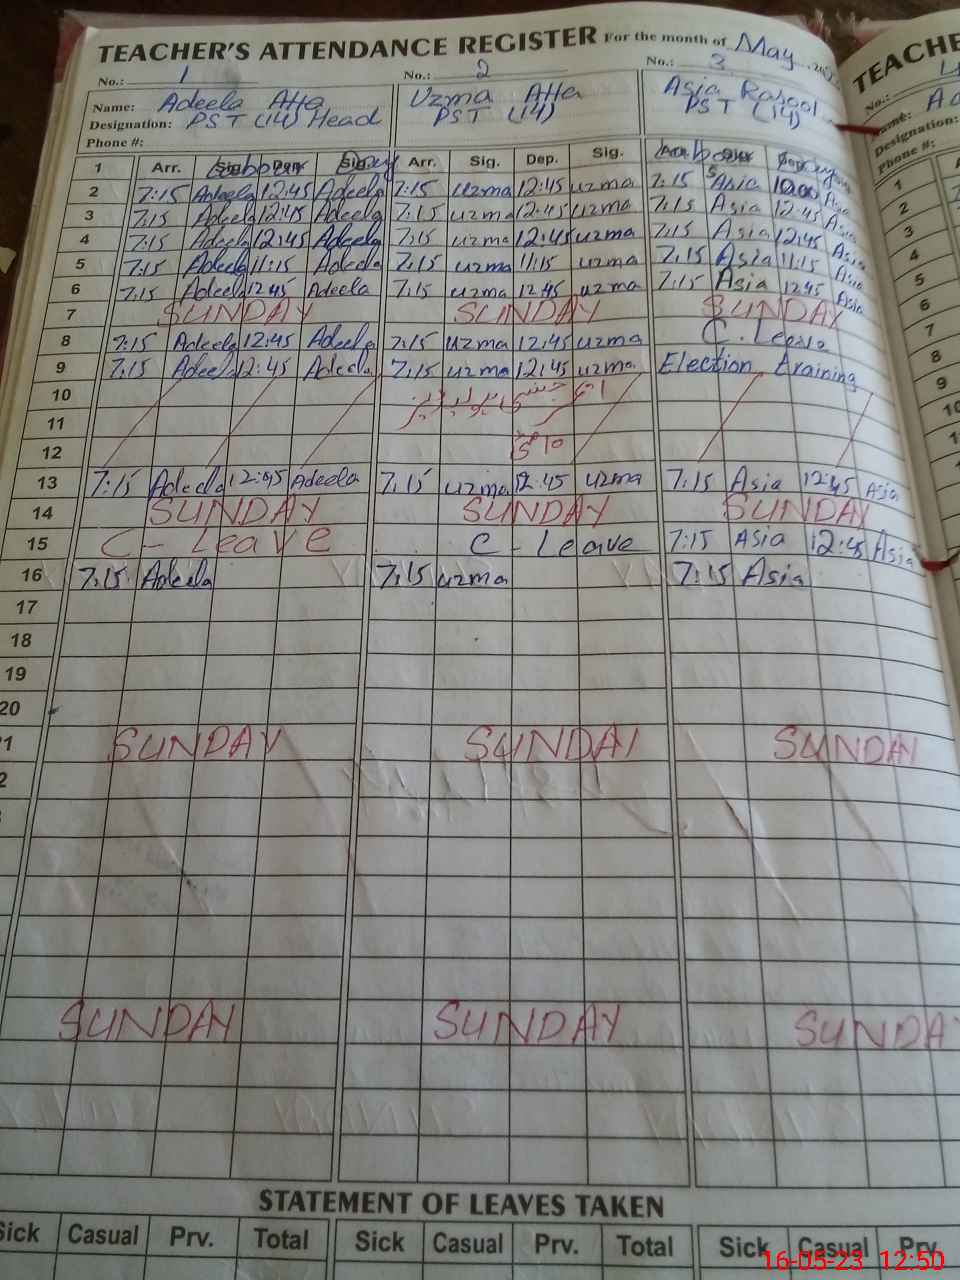 TEACHER'S ATTENDANCE REGISTER For the month of May
TEACHE
No.: 1 No.: 2 No.: 3
No.:
Name: Adeela Atta Uzma Atta Asia Rasool
Designation: PST (14) Head PST (14) PST (14)
Designation:
Phone #:
Phone #:
1 Arr. Arr. Sig. Dep. Sig. 1
2 7:15 Adeela 12:45 Adeela 7:15 uzma 12:45 uzma 7:15 Asia 10:00 Asia 2
3 7:15 Adeela 12:45 Adeela 7:15 uzma 12:45 uzma 7:15 Asia 12:45 Asia 3
4 7:15 Adeela 12:45 Adeela 7:15 uzma 12:45 uzma 7:15 Asia 12:45 Asia 4
5 7:15 Adeela 11:15 Adeela 7:15 uzma 11:15 uzma 7:15 Asia 11:15 Asia 5
6 7:15 Adeela 12:45 Adeela 7:15 uzma 12:45 uzma 7:15 Asia 12:45 Asia 6
7 SUNDAY SUNDAY SUNDAY 7
8 7:15 Adeela 12:45 Adeela 7:15 uzma 12:45 uzma C. Leave 8
9 7:15 Adeela 12:45 Adeela 7:15 uzma 12:45 uzma Election training 9
10
11
12
13 7:15 Adeela 12:45 Adeela 7:15 uzma 12:45 uzma 7:15 Asia 12:45 Asia
14 SUNDAY SUNDAY SUNDAY
15 C - Leave C - Leave 7:15 Asia 12:45 Asia
16 7:15 Adeela 7:15 uzma 7:15 Asia
17
18
19
20
1 SUNDAY SUNDAY SUNDAY
2
SUNDAY SUNDAY SUNDA
STATEMENT OF LEAVES TAKEN
Sick Casual Prv. Total Sick Casual Prv. Total Sick Casual Prv.
16-05-23 12:50